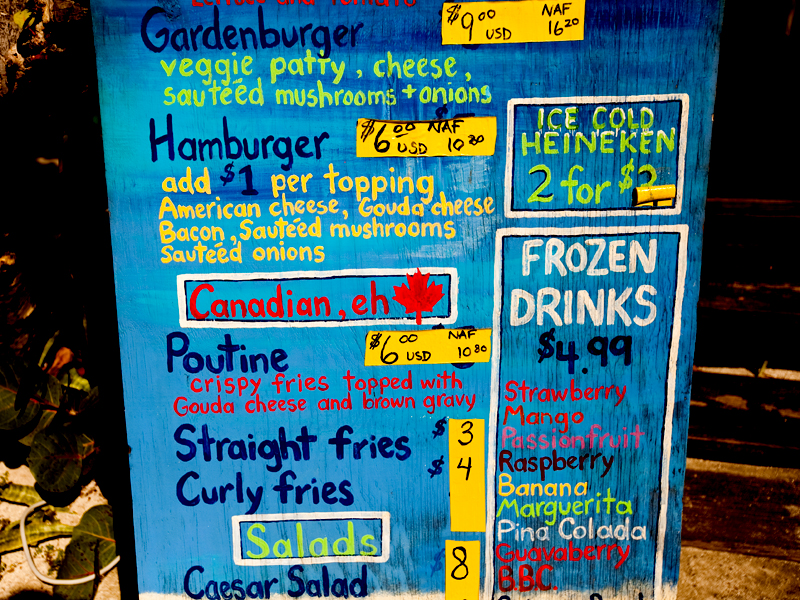 Lettuce and tomato
Gardenburger
$9.00 USD NAF 16.20
veggie patty, cheese,
sauteéd mushrooms + onions
Hamburger
$6.00 USD NAF 10.80
add $1 per topping
American cheese, Gouda cheese
Bacon, Sauteéd mushrooms
Sauteéd onions
Canadian, eh
Poutine
$6.00 USD NAF 10.80
crispy fries topped with
Gouda cheese and brown gravy
Straight fries $3
Curly fries $4
Salads
Caesar Salad 8
ICE COLD
HEINEKEN
2 for $
FROZEN
DRINKS
$4.99
Strawberry
Mango
Passionfruit
Raspberry
Banana
Marguerita
Pina Colada
Guavaberry
B.B.C.